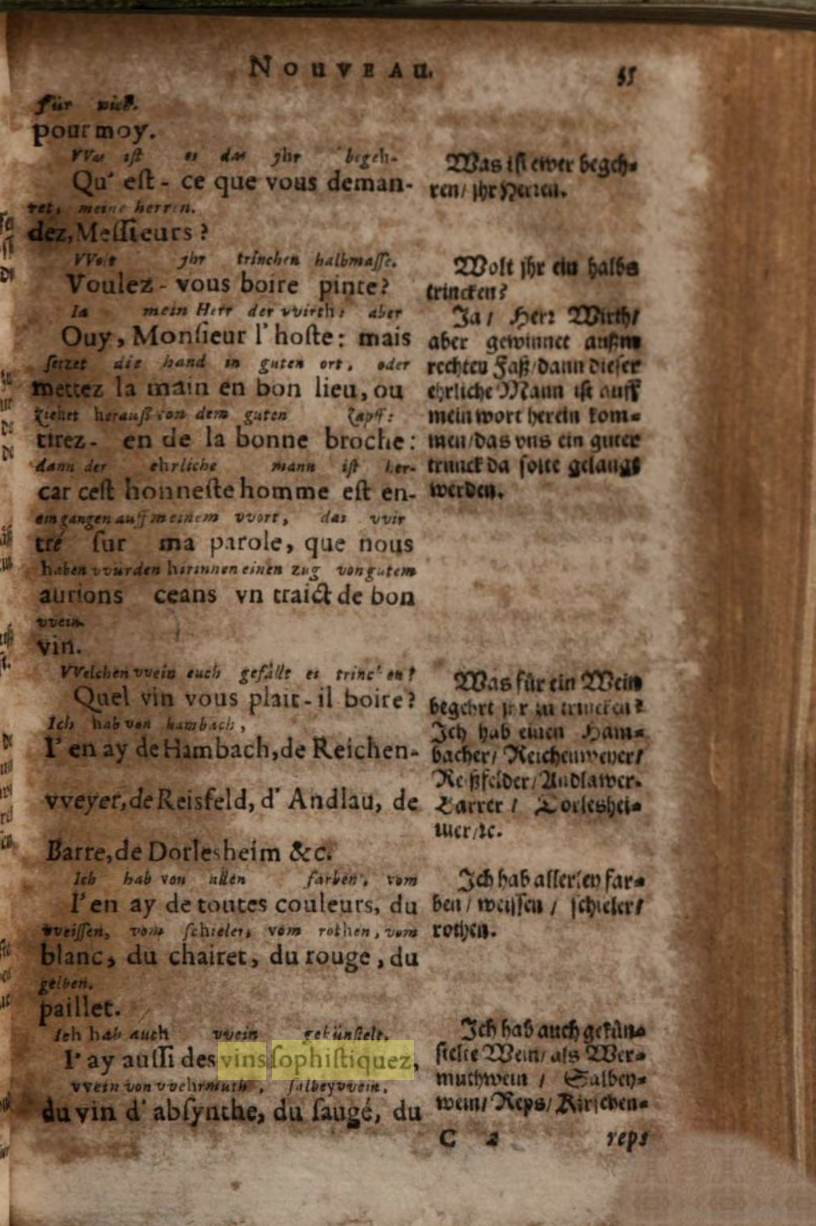 NOUVEAU. 55
für mich.
pour moy.
VVas ist es das jhr begeh-
Qu' eſt - ce que vous deman-
ret, meine herren.
dez, Meſſieurs?
jhr trincken halbmaſſe.
Voulez - vous boire pinte?
Ia mein Herr der vvirth: aber
Ouy, Monſieur l' hoſte: mais
ſetzet die hand in guten ort, oder
mettez la main en bon lieu, ou
ziehet herauß von dem guten Zapff:
tirez - en de la bonne broche:
dann der ehrliche mann iſt her-
car ceſt honneſte homme eſt en-
eingangen auff meinem vvort, das vvir
tré ſur ma parole, que nous
haben vvurden hirinnen einen zug von gutem
aurions ceans vn traict de bon
vvein.
vin.
VVelchen vvein euch gefällt es trincken?
Quel vin vous plait - il boire?
Ich hab von hambach,
I' en ay de Hambach, de Reichen-
vveyer, de Reisfeld, d' Andlau, de
Barre, de Dorlesheim &c.
Ich hab von allen farben, vom
I' en ay de toutes couleurs, du
vveiſſen, vom ſchieler, vom rothen, vom
blanc, du chairet, du rouge, du
gelben.
paillet.
Ich hab auch vvein gekünſtelt,
I' ay auſſi des vins ſophiſtiquez,
vvein von vvehrmuth, ſalbeyvvein,
du vin d' abſynthe, du ſaugé, du
Was iſt ewer begeh-
ren/ jhr Herren.
Wolt jhr ein halbs
trincken?
Ja/ Herr Wirth/
aber gewinnet außm
rechten Faß/ dann dieſer
ehrliche Mann iſt auff
mein wort herein kom-
men/ das vns ein guter
trunck da ſolte gelangt
werden.
Was für ein Wein
begehrt jhr zu trincken?
Ich hab einen Ham-
bacher/ Reichenweyer/
Reißfelder/ Andlawer-
Barrer/ Dorleshei-
mer/ ꝛc.
Ich hab allerley far-
ben/ weiſſen/ ſchieler/
rothen.
Ich hab auch gekün-
ſtelte Wein/ als Wer-
muthwein/ Salbey-
wein/ Reps/ Kirſchen-
C 2 reps